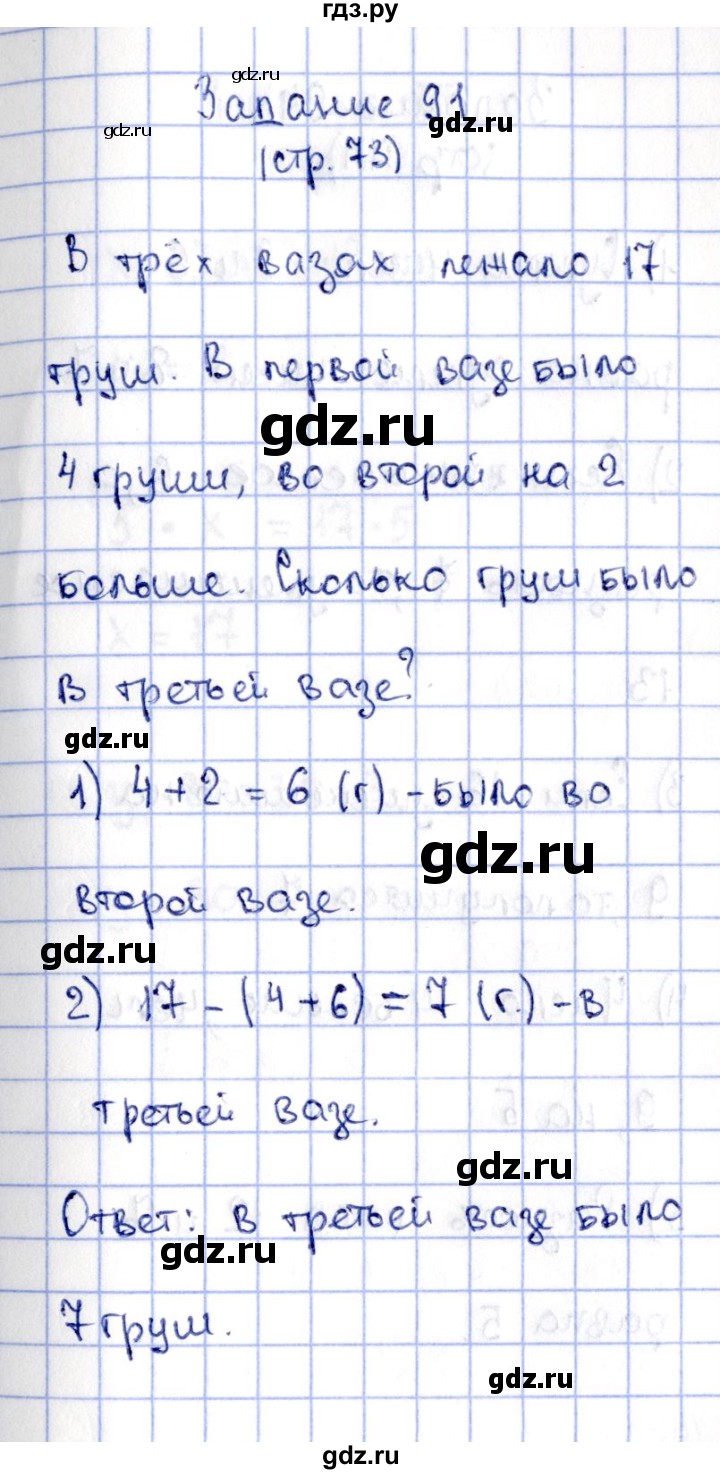 гдз.ру
gdz.ru
Задание 91
gdz.ru
gdz.ru
(стр. 73)
В трёх вазах лежало 17
груш. В первой вазе было
gdz.ru
4 груши, во второй на 2
больше. Сколько груш было
в третьей вазе?
gdz.ru
1) 4 + 2 = 6 (г) - было во
gdz.ru
второй вазе.
gdz.ru
2) 17 - (4 + 6) = 7 (г.) - в
третьей вазе.
gdz.ru
Ответ: в третьей вазе было
gdz.ru
7 груш.
gdz.ru
gdz.ru